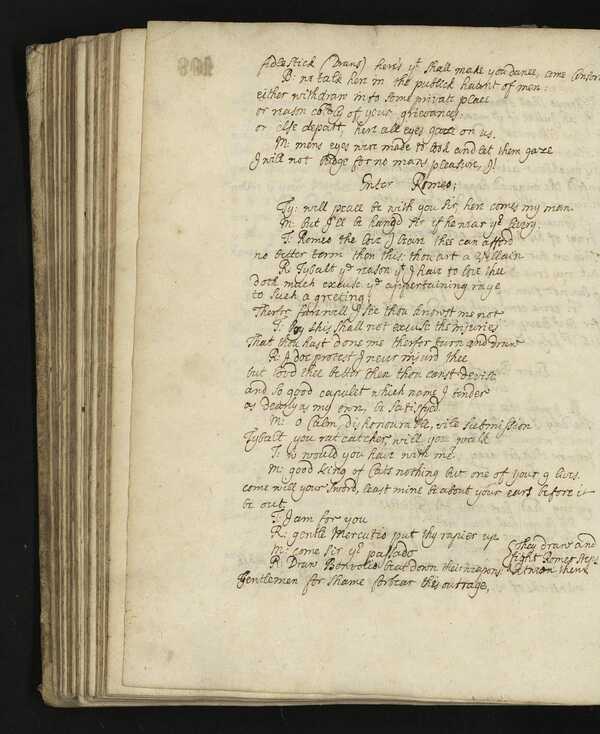 fidlestick (Draws) here's yt shall make you dance, come Consor
B: no talk here in the publick haunt of men:
either withdraw into some private place
or reason coldly of your grievances:
or else depart, here all eyes gaze on us.
M: mens eyes were made to look and let them gaze
I will not bodge for no mans pleasure, I!
Enter Romeo;
Ty: well peace be with you Sir, here comes my man.
M: but I'le be hang'd Sir if he wear yr livery.
T: Romeo the love I bear thee can afford
no better term then this: thou art a Villain
R: Tybalt ye reason yt I have to love thee
doth much excuse ye appertaining rage
to such a greeting!
Therfor farewell I see thou knowst me not
T: boy this shall not excuse the injuries
That thou hast done me therfor turn and draw
R: I doe protest I never injurd thee
but lov'd thee better then thou canst devise
and so good capulet which name I tender
as dearly as my own, be satisfyed
M: o Calm, dishonourable, vile submission
Tybalt you rat catcher will you walk
T: w would you have with me
M: good king of Cats nothing but one of your 9 lives.
come will your sword, least mine be about your ears before it
be out
T: I am for you
R: gentle Mercutio put thy rapier up
M: come Sir yr passado
R: Draw Benvolio beat down their weapons
Gentlemen for shame forbear this outrage,
They draw and
fight Romeo steps
between them
108